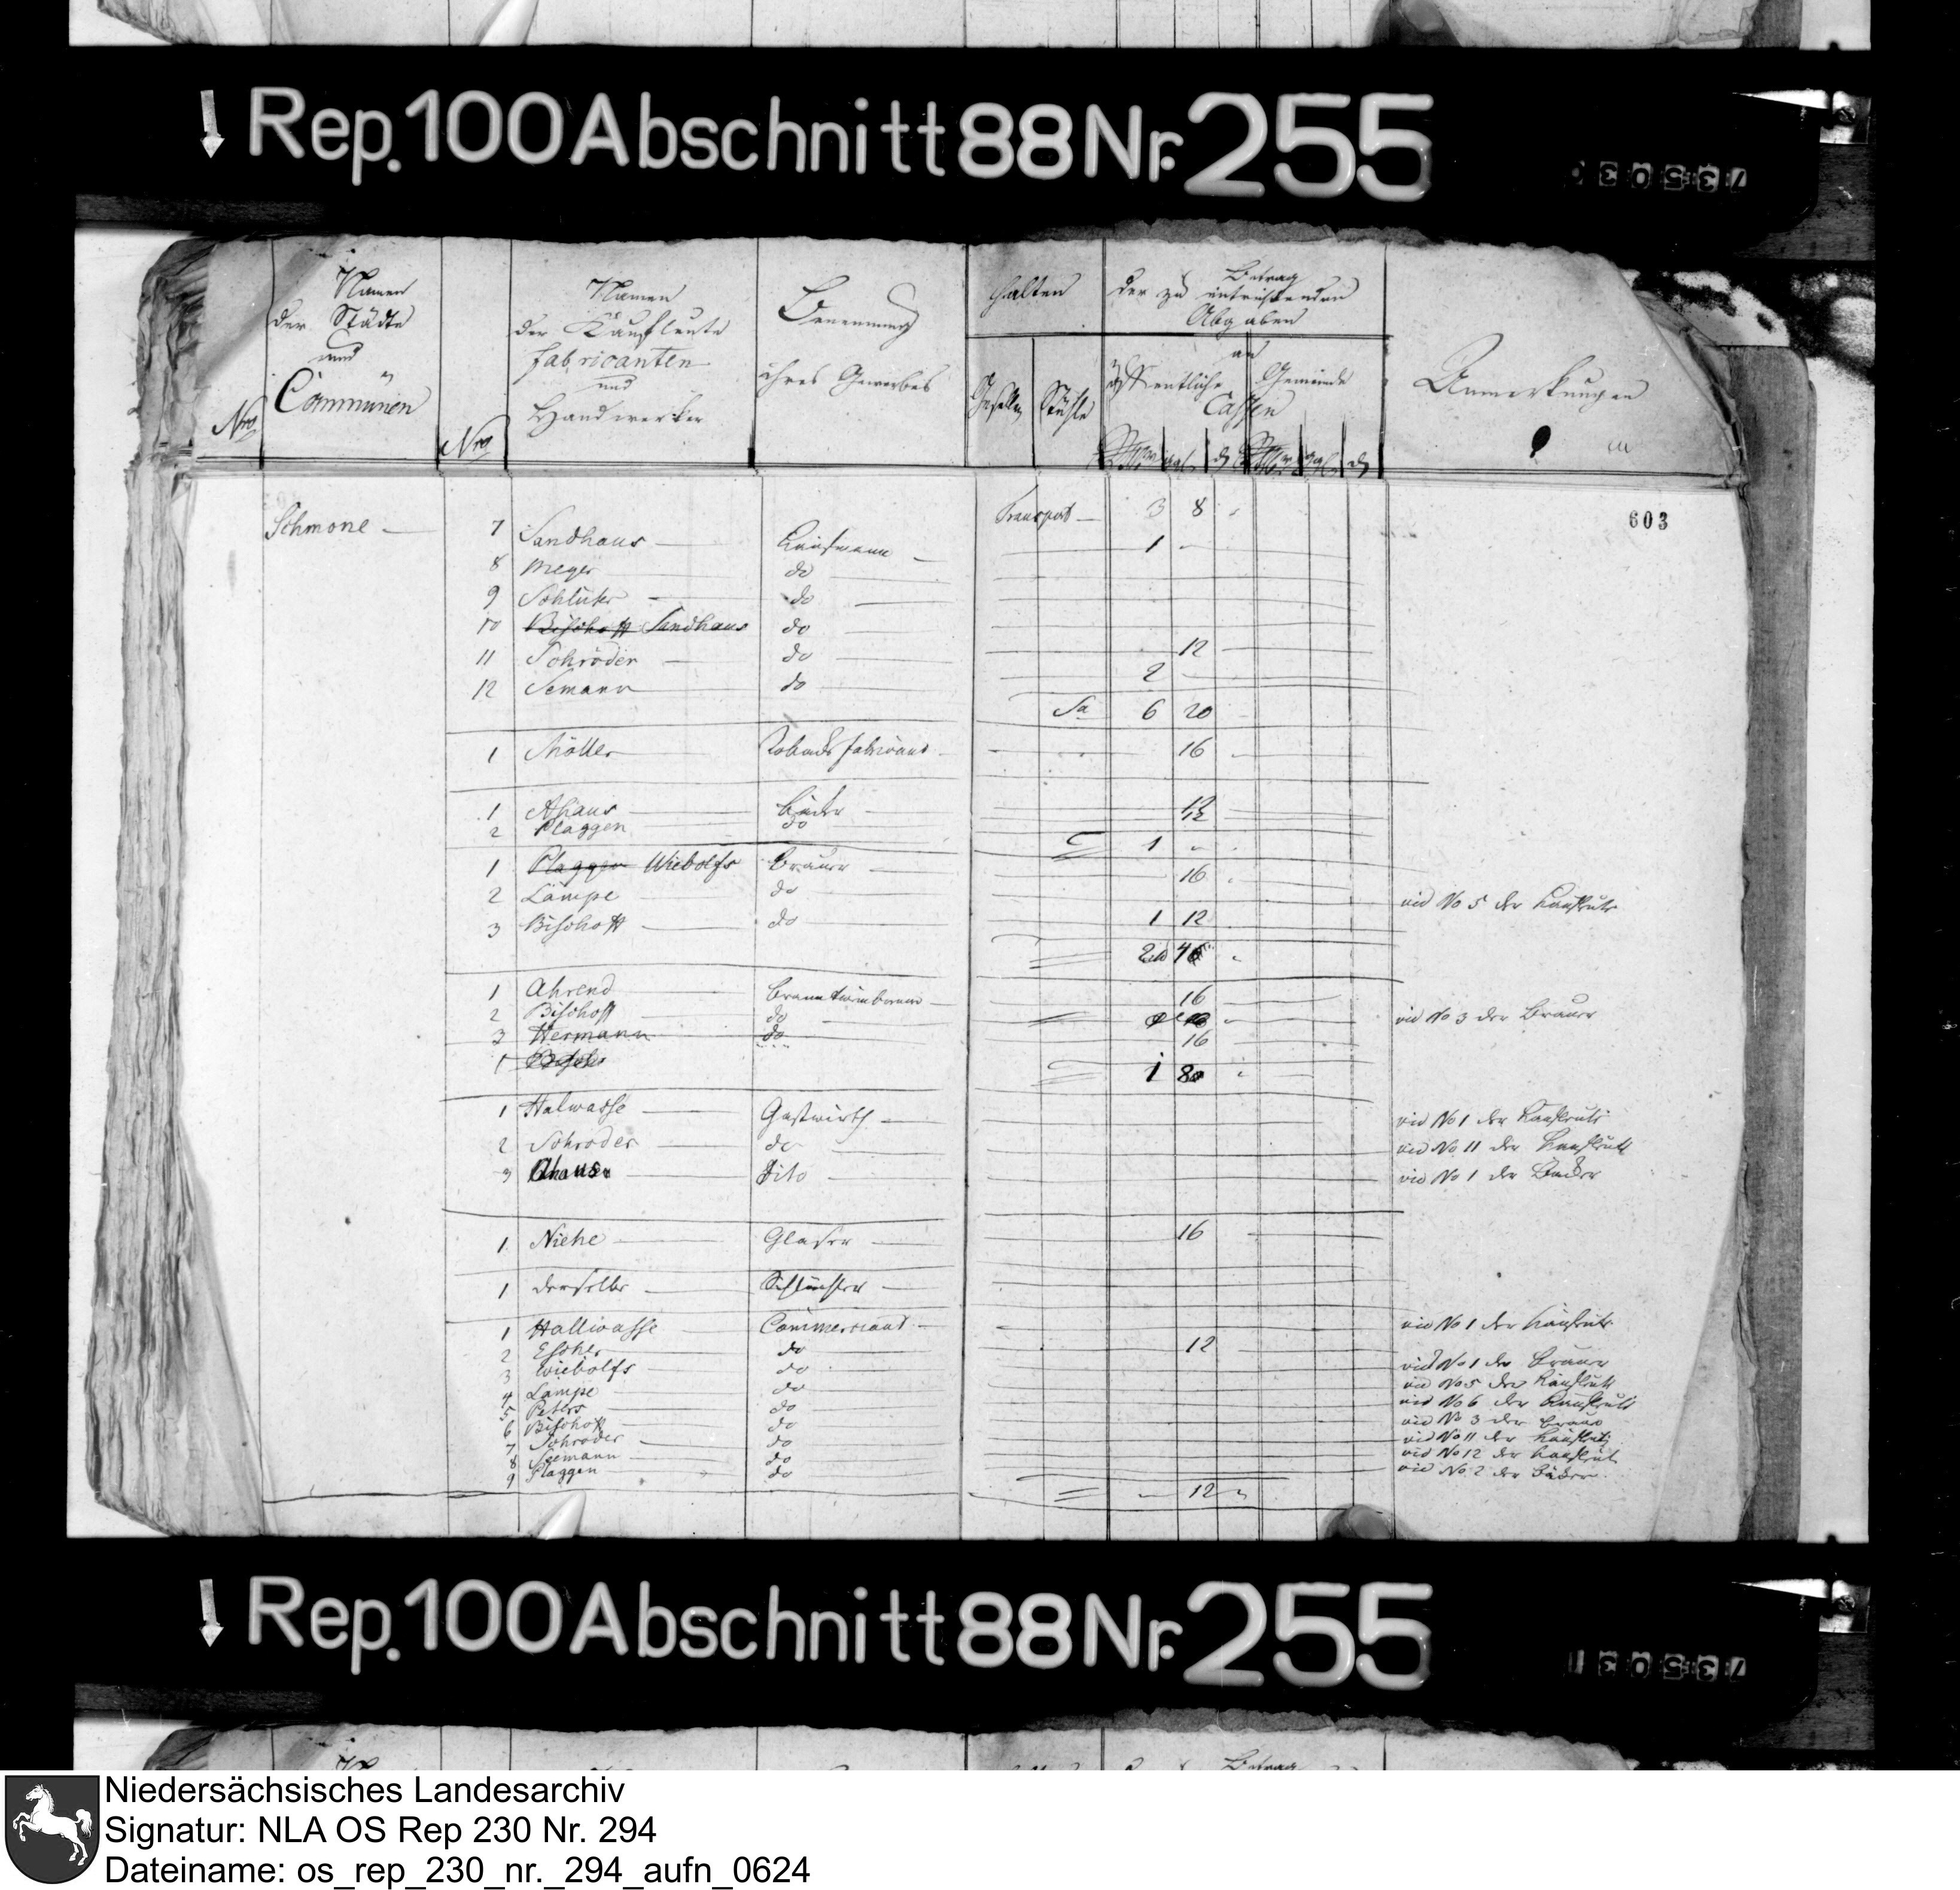 Rep. 100 Abschnitt 88 Nr. 255
Nro
Namen
der Städte
und
Communen
Nro
Namen
der Kaufleute
fabricanten
und
Handwerker
Benennung
ihres Gewerbes
halten
Gesellen
Stühle
Betrag
der zu entrichtenden
Abgaben
an
öffentliche Gemeinde
Cassen
Anmerkungen
603
Transport 3 8
Schmone 7 Sandhaus Kaufmann 1
8 Meyer do
9 Schlüter do
10 Bischoff Sandhaus do
11 Schröder do 12
12 Semann do 2
Sa 6 20
1 Möller Tobacks fabricant 16
1 Ahaus Bäcker 12
2 Plaggen do 12
1
1 Plaggen Wiebolfs Brauer 16
2 Lampe do vid No 5 der Kaufleute
3 Bischoff do 1 12
1 Ahrend Branntweinbrenner 16
2 Bischoff do vid No 3 der Brauer
3 Hermann do 16
1
1 8
1 Halwasse Gastwirth vid No 1 der Kaufleute
2 Schroder do vid No 11 der Kaufleute
3 Ahaus Dito vid No 1 der Bäcker
1 Niehe Glaser 16
1 derselbe
1 Halliwasse Commerciant vid No 1 der Kaufleute
2 Escher do 12
3 Wiebolfs do vid No 1 der Brauer
4 Lampe do vid No 5 der Kaufleute
5 Peters do vid No 6 der Kaufleute
6 Bischoff do vid No 3 der Brauer
7 Schroder do vid No 11 der Kaufleute
8 Seemann do vid No 12 der Kaufleute
9 Plaggen do vid No 2 der Bäcker
12
Rep. 100 Abschnitt 88 Nr. 255
Niedersächsisches Landesarchiv
Signatur: NLA OS Rep 230 Nr. 294
Dateiname: os_rep_230_nr._294_aufn_0624